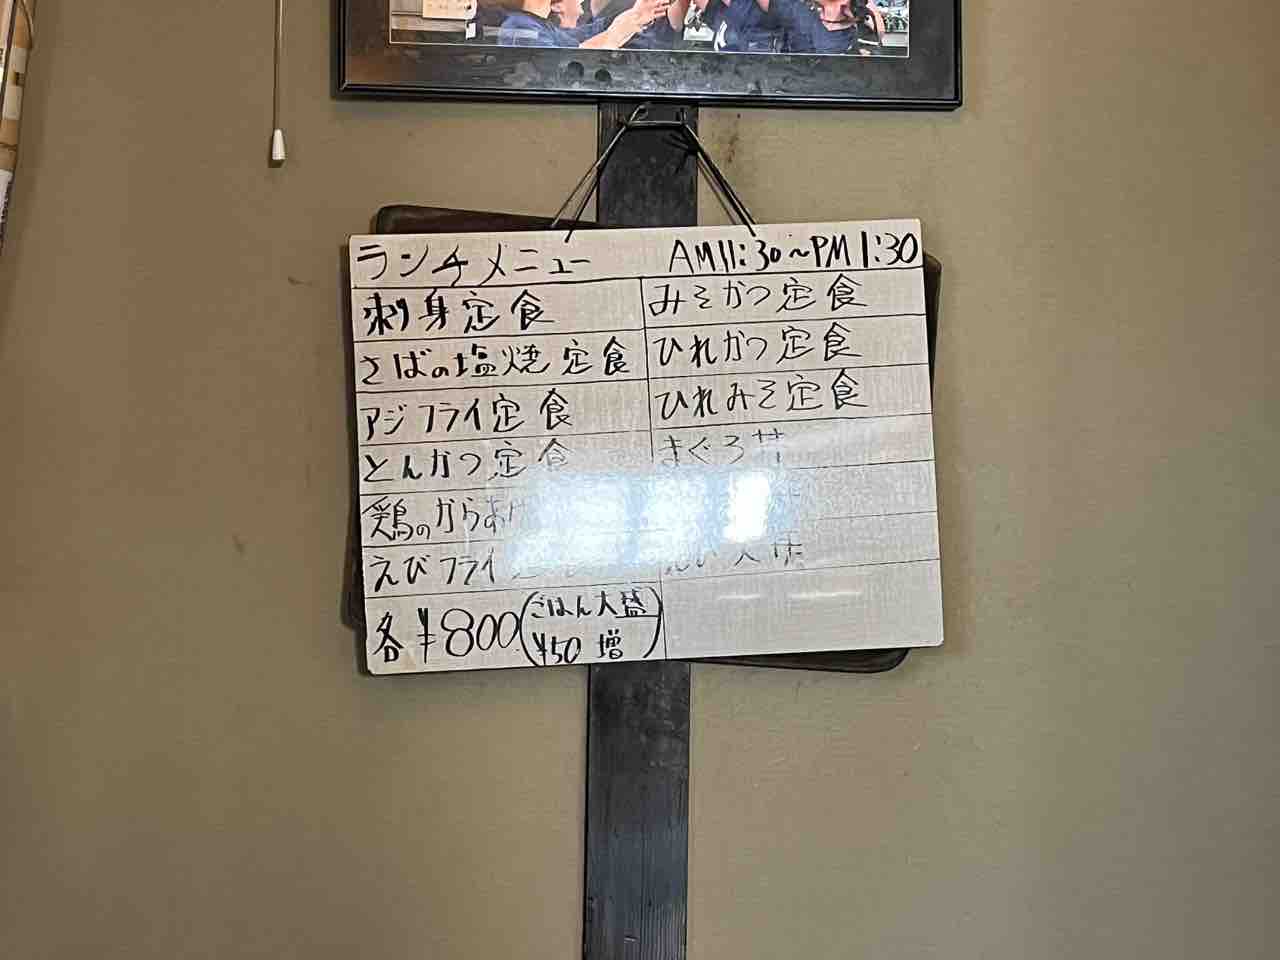 ランチメニュー AM11:30～PM1:30
刺身定食
さばの塩焼定食
アジフライ定食
とんかつ定食
鶏のからあげ
えびフライ
各¥800(ごはん大盛
¥50増)
みそかつ定食
ひれかつ定食
ひれみそ定食
まぐろ丼